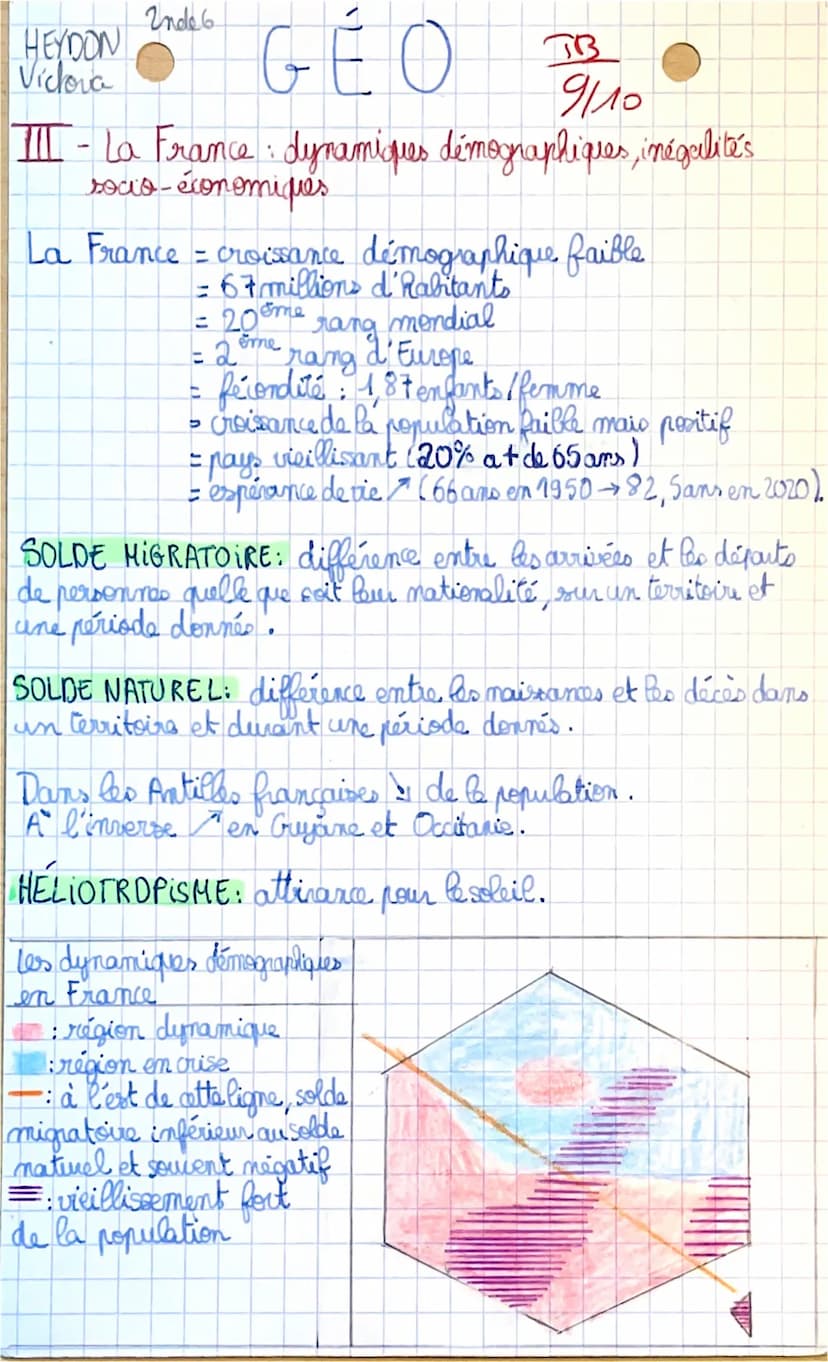 HEYDON
Victoria
2nde6
GÉO
TB
9/10
III - La France : dynamiques démographiques, inégalités
socio-économiques
La France = croissance démographique faible
= 67 millions d'habitants
= 20ème rang mondial
= 2ème rang d'Europe
= fécondité : 1,87 enfants/femme
= croissance de la population faible mais positif
= pays vieillissant (20% a + de 65 ans)
= espérance de vie ↗ (66 ans en 1950 → 82,5 ans en 2020).
SOLDE MIGRATOIRE : différence entre les arrivées et les départs
de personnes quelle que soit leur nationalité, sur un territoire et
une période donnés.
SOLDE NATUREL : différence entre les naissances et les décès dans
un territoire et durant une période donnés.
Dans les Antilles françaises ↘ de la population.
A l'inverse ↗ en Guyane et Occitanie.
HÉLIOTROPISME : attirance pour le soleil.
Les dynamiques démographiques
en France
: région dynamique
: région en crise
: à l'est de cette ligne, solde
migratoire inférieur au solde
naturel et souvent négatif
: vieillissement fort
de la population